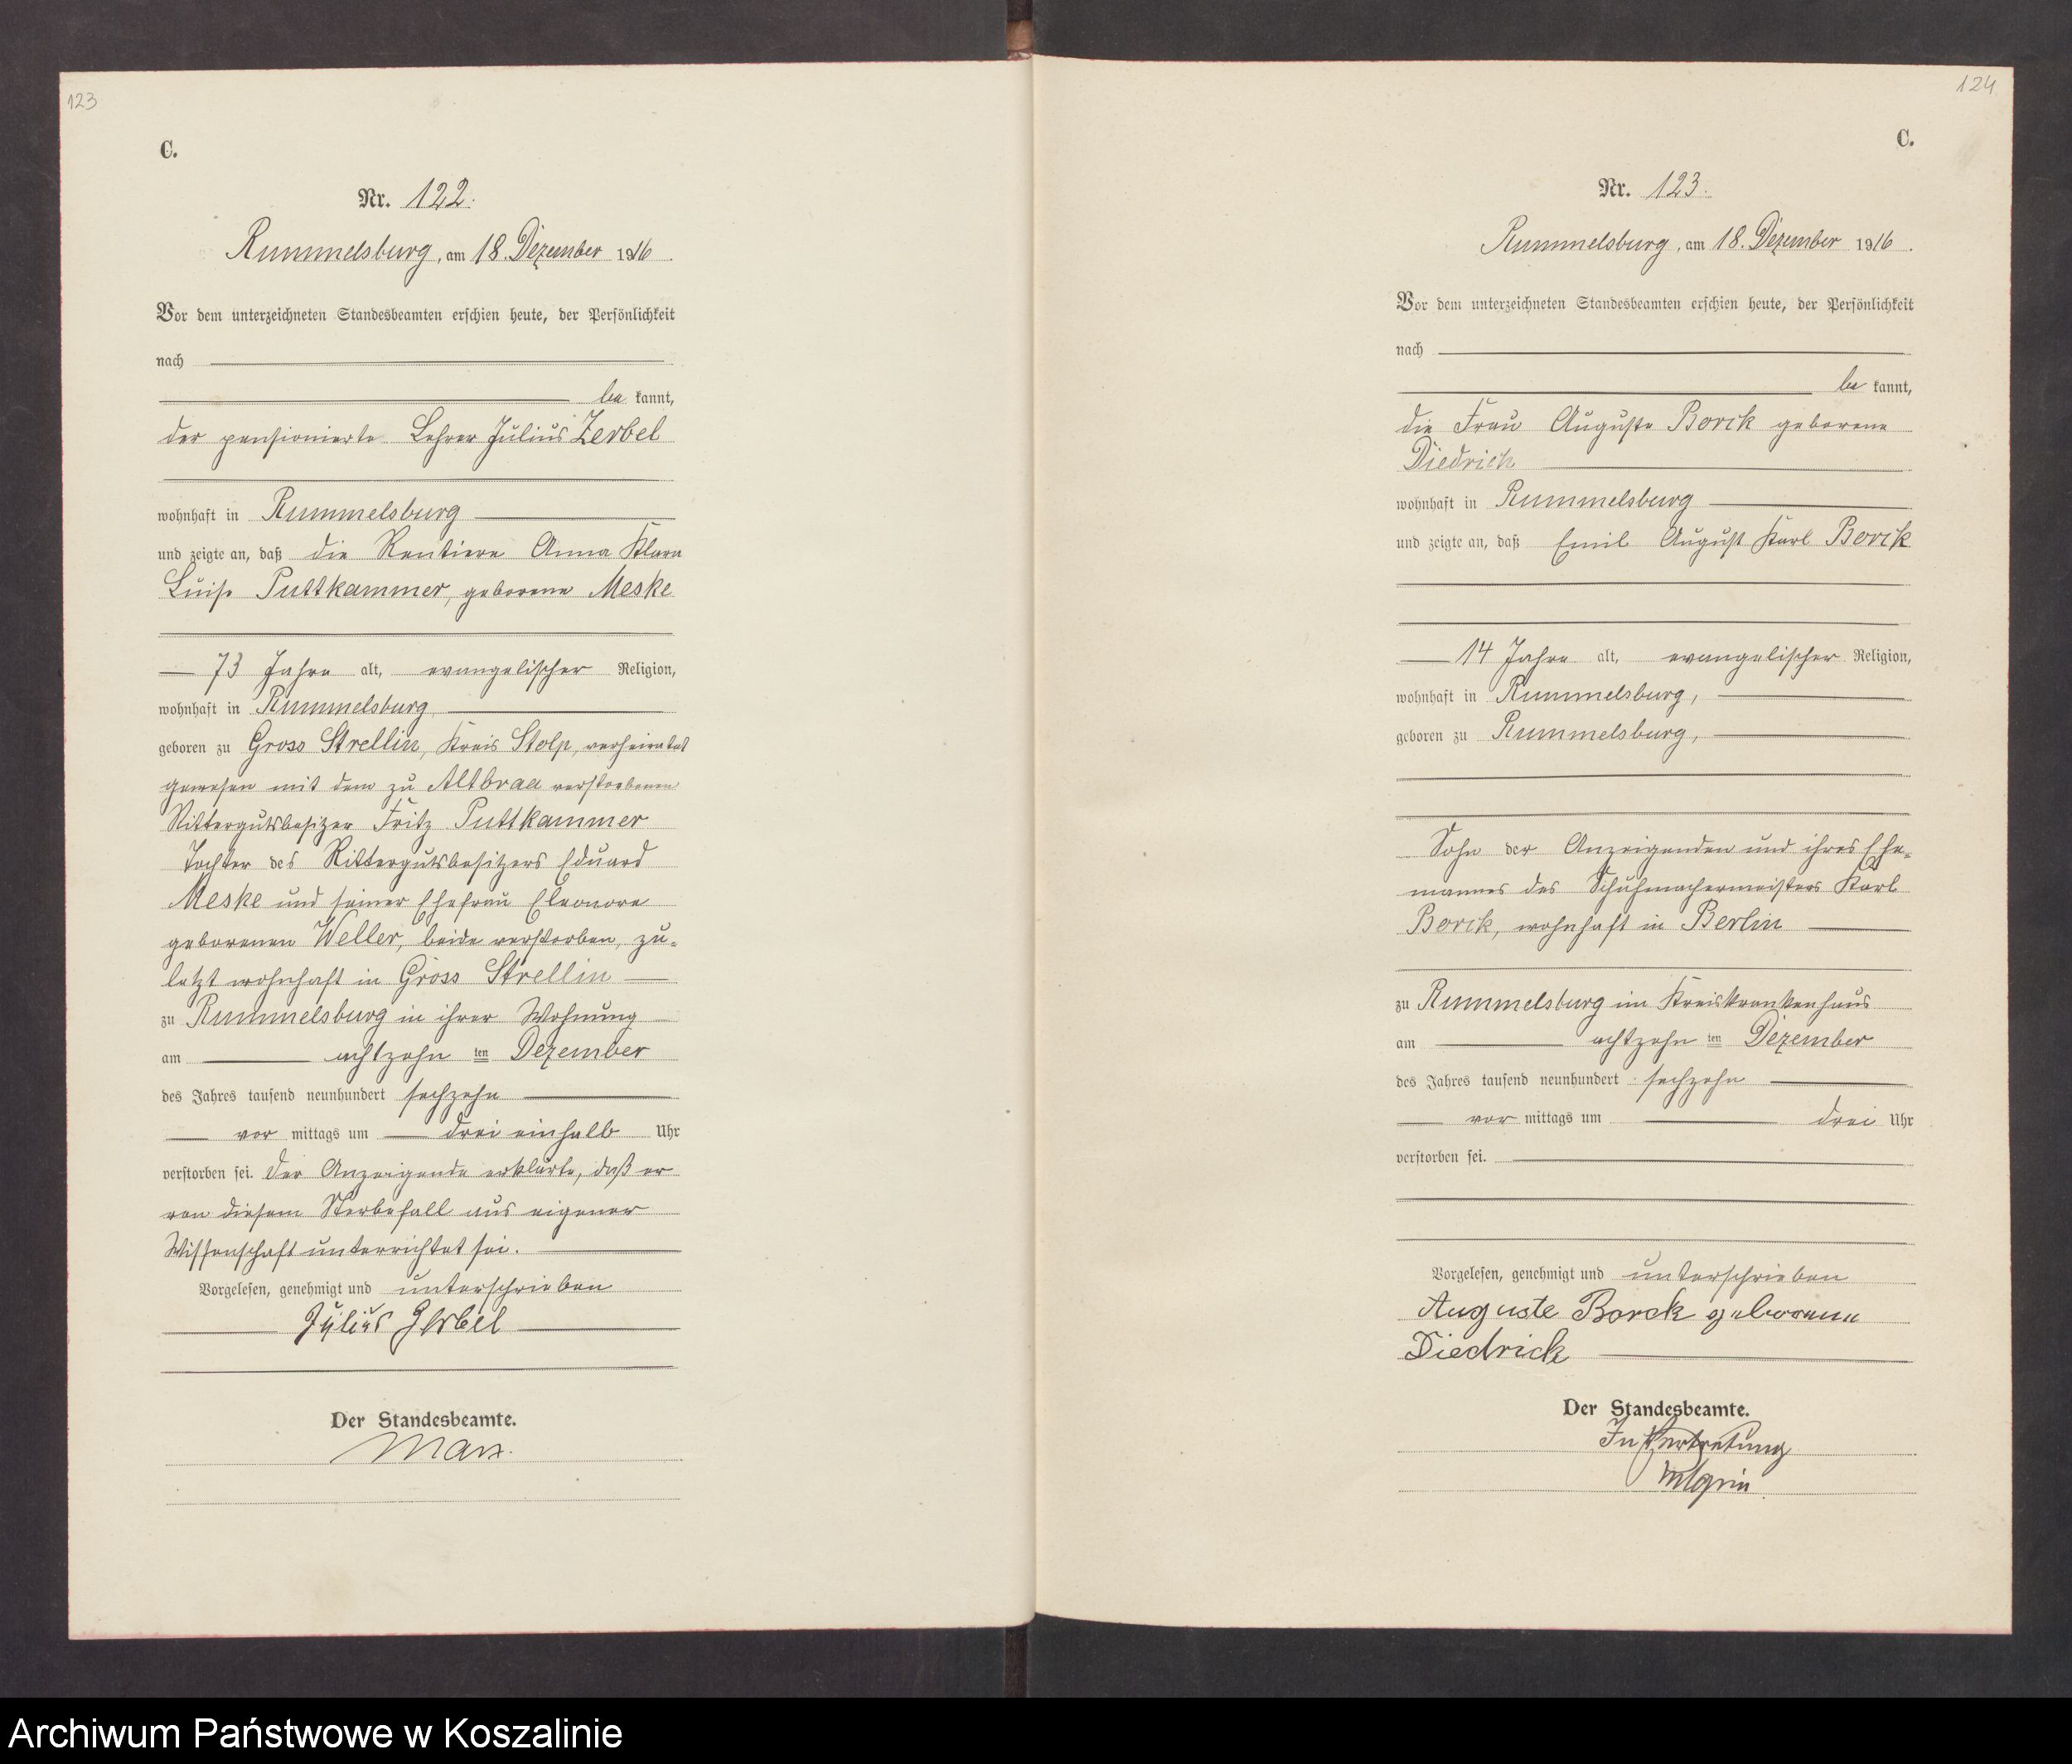 123
C.
Nr. 122.
Rummelsburg, am 18. Dezember 1916.
Vor dem unterzeichneten Standesbeamten erschien heute, der Persönlichkeit
nach
be kannt,
der pensionierte Lehrer Julius Zerbel
wohnhaft in Rummelsburg
und zeigte an, daß die Rentiere Anna Klara
Luise Puttkammer, geborene Meske
73 Jahre alt, evangelischer Religion,
wohnhaft in Rummelsburg,
geboren zu Gross Strellin, Kreis Stolp, verheiratet
gewesen mit dem zu Altbraa verstorbenen
Rittergutsbesizer Fritz Puttkammer
Tochter des Rittergutsbesitzers Eduard
Meske und seiner Ehefrau Eleonore
geborenen Weller, beide verstorben, zu-
letzt wohnhaft in Gross Strellin
zu Rummelsburg in ihrer Wohnung
am achtzehn ten Dezember
des Jahres tausend neunhundert sechzehn
vor mittags um drei einhalb Uhr
verstorben sei. Der Anzeigende erklärte, daß er
von diesem Sterbefall aus eigener
Wissenschaft unterrichtet sei.
Vorgelesen, genehmigt und unterschrieben
Julius Zerbel
Der Standesbeamte.
Marx.
124
C.
Nr. 123.
Rummelsburg, am 18. Dezember 1916.
Vor dem unterzeichneten Standesbeamten erschien heute, der Persönlichkeit
nach
be kannt,
die Frau Auguste Borck geborene
Diedrich
wohnhaft in Rummelsburg
und zeigte an, daß Emil August Karl Borck
14 Jahre alt, evangelischer Religion,
wohnhaft in Rummelsburg,
geboren zu Rummelsburg,
Sohn der Anzeigenden und ihres Ehe-
mannes des Schuhmachermeisters Karl
Borck, wohnhaft in Berlin
zu Rummelsburg im Kreiskrankenhaus
am achtzehn ten Dezember
des Jahres tausend neunhundert sechzehn
vor mittags um drei Uhr
verstorben sei.
Vorgelesen, genehmigt und unterschrieben
Auguste Borck geborene
Diedrick
Der Standesbeamte.
In Vertretung
Archiwum Państwowe w Koszalinie